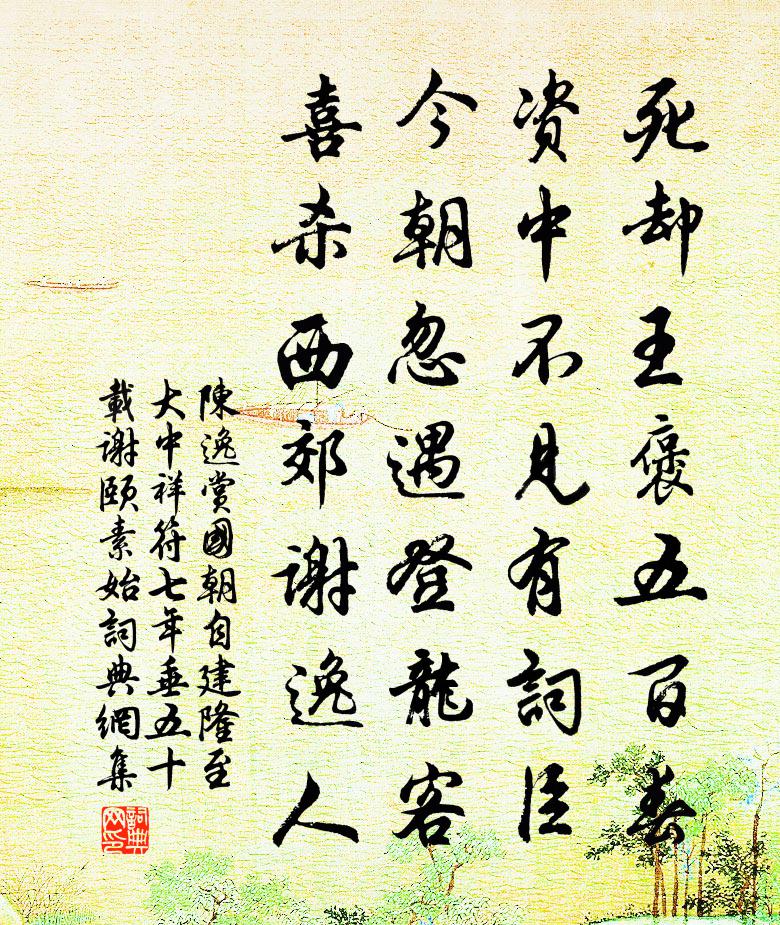 死却王褒五百春
资中不見有詞臣
今朝忽遇登龍客
喜杀西郊谢逸人
陳逸賞國朝自建隆至
大中祥符七年垂五十
載谢頤素始詞典網集
詞典
网印